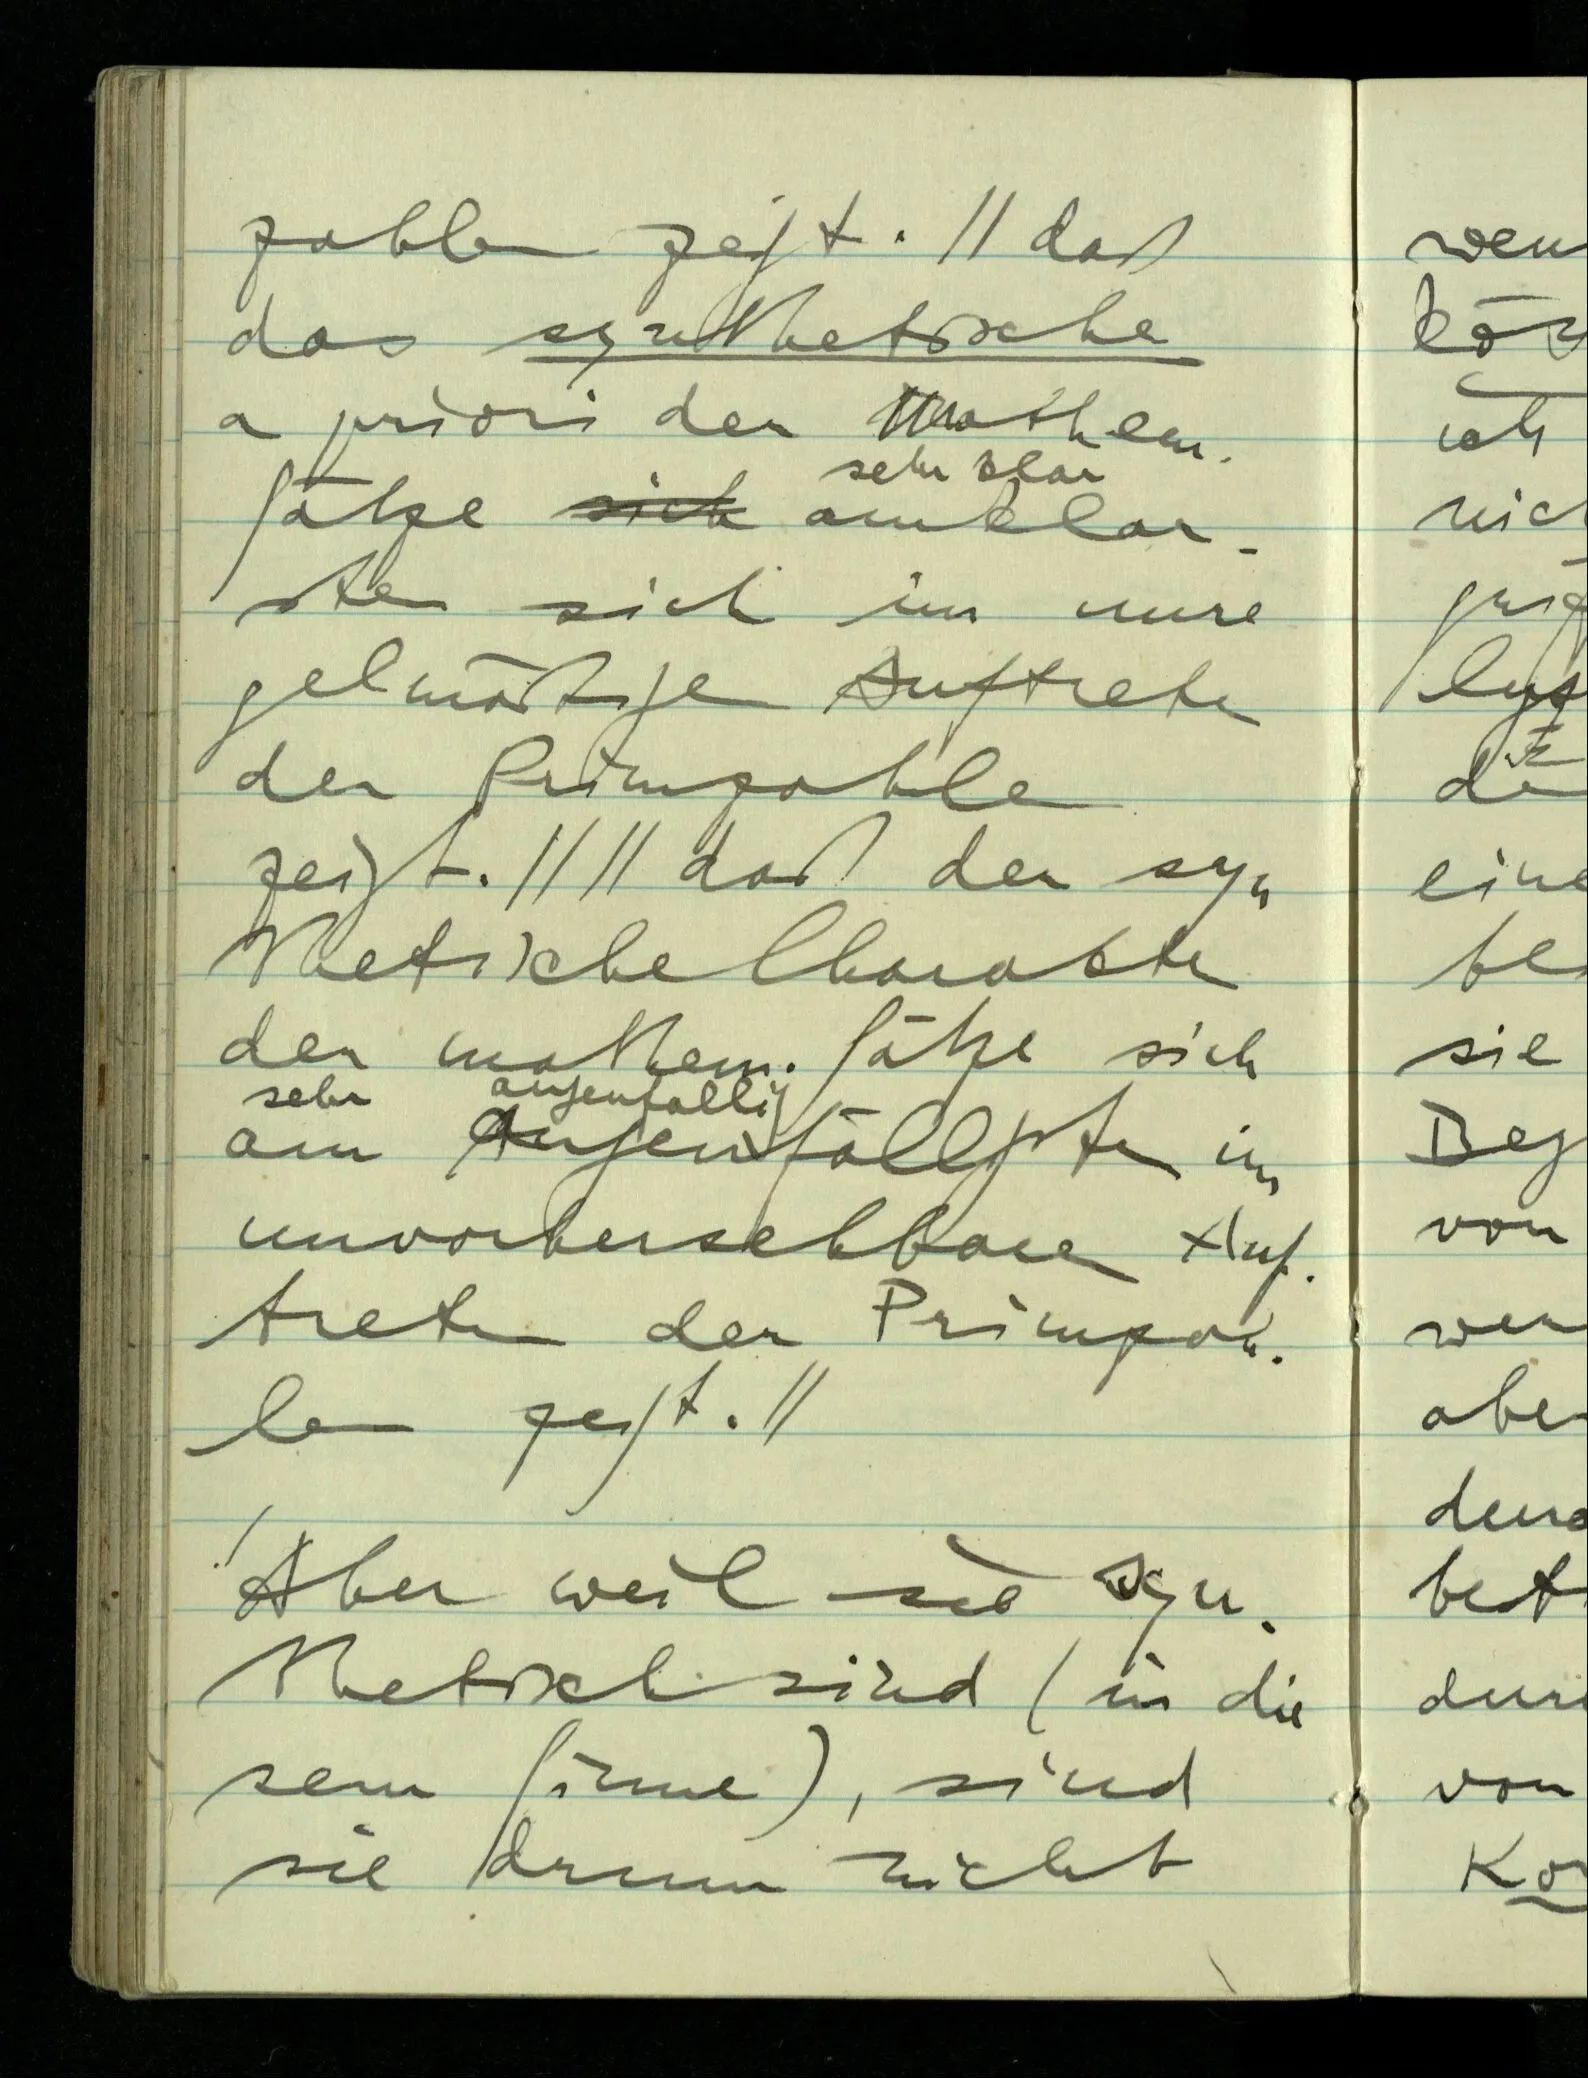 zahlen zeigt. // daß
das synthetische
a priori der Mathem.
sehr klar
Sätze sich am klar-
sten sich im unre
gelmäßigen Auftreten
der Primzahlen
zeigt. // // daß der syn
thetische Charakter
der mathem. Sätze sich
sehr augenfällig
am Augenfälligsten im
unvorhersehbaren Auf-
treten der Primzah-
len zeigt. //
/Aber weil sie syn-
thetisch sind (in die
sem Sinne), sind
sie drum nicht
wen
kön
ich
nich
die
eine
be
sie
Beg
von
wer
aber
bet
dur
von
Kon